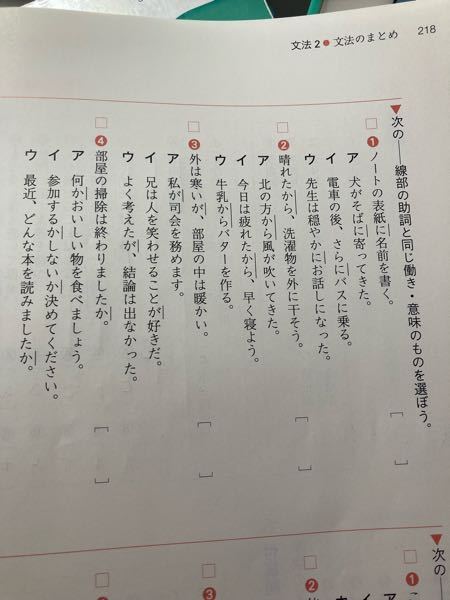 文法2●文法のまとめ 218
▼次の──線部の助詞と同じ働き・意味のものを選ぼう。
□❶ノートの表紙に名前を書く。 [ ]
ア 犬がそばに寄ってきた。
イ 電車の後、さらにバスに乗る。
ウ 先生は穏やかにお話しになった。
□❷晴れたから、洗濯物を外に干そう。 [ ]
ア 北の方から風が吹いてきた。
イ 今日は疲れたから、早く寝よう。
ウ 牛乳からバターを作る。
□❸外は寒いが、部屋の中は暖かい。 [ ]
ア 私が司会を務めます。
イ 兄は人を笑わせることが好きだ。
ウ よく考えたが、結論は出なかった。
□❹部屋の掃除は終わりましたか。 [ ]
ア 何かおいしい物を食べましょう。
イ 参加するかしないか決めてください。
ウ 最近、どんな本を読みましたか。
▼次の──
□❶
ア
イ
□❷
□❸
□❹